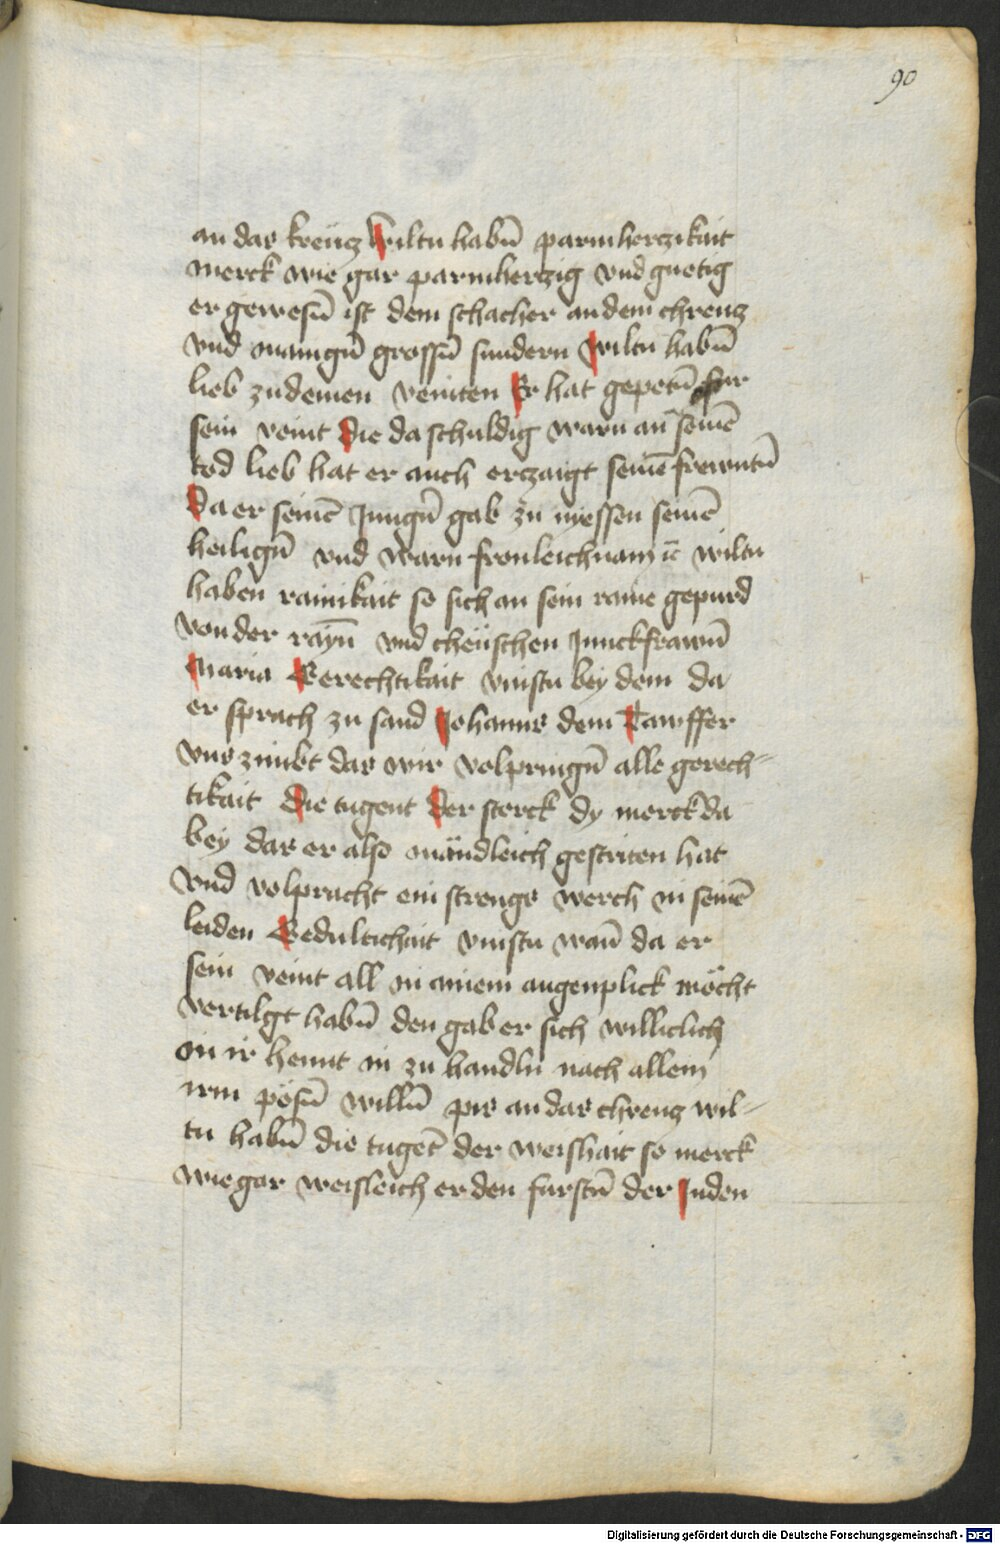 90
an das kreücz Wiltu habn̄ parmherczikait
merck wie gar parmherczig vnd guetig
er gewesn̄ ist dem schacher an dem chreucz
vnd manign̄ grossn̄ sundern Wiltu habn̄
lieb zu deinen veinten Er hat gepetn̄ fur
sein veint Die da schuldig warn an seinē
tod lieb hat er auch erczaigt seinē frewntn̄
Da er seinē Jungn̄ gab zu nyessen seinē
heilign̄ vnd warn fronleichnam ꝛc wiltu
haben rainikait so sich an sein raine gepurd
von der rayn̄ vnd cheüschen Junckfrawn̄
Maria Gerechtikait vinstu bey dem da
er sprach zu sand Johanns dem Tawffer
vns zimbt das wir volpringn̄ alle gerech-
tikait Die tugent Der sterck dy merck da
bey das er also mändleich gestriten hat
vnd volpracht ein strengs werch in seinē
leiden Gedultichait vinstu wan̄ da er
sein veint all in ainem augenplick möcht
vertilgt habn̄ den gab er sich williclich
in ir hennt in zu handln nach allem
irm pösn̄ willn̄ pis an das chreucz wil-
tu habn̄ die tugēt der weishait so merck
wie gar weisleich er den furstn̄ der Juden
Digitalisierung gefördert durch die Deutsche Forschungsgemeinschaft - DFG